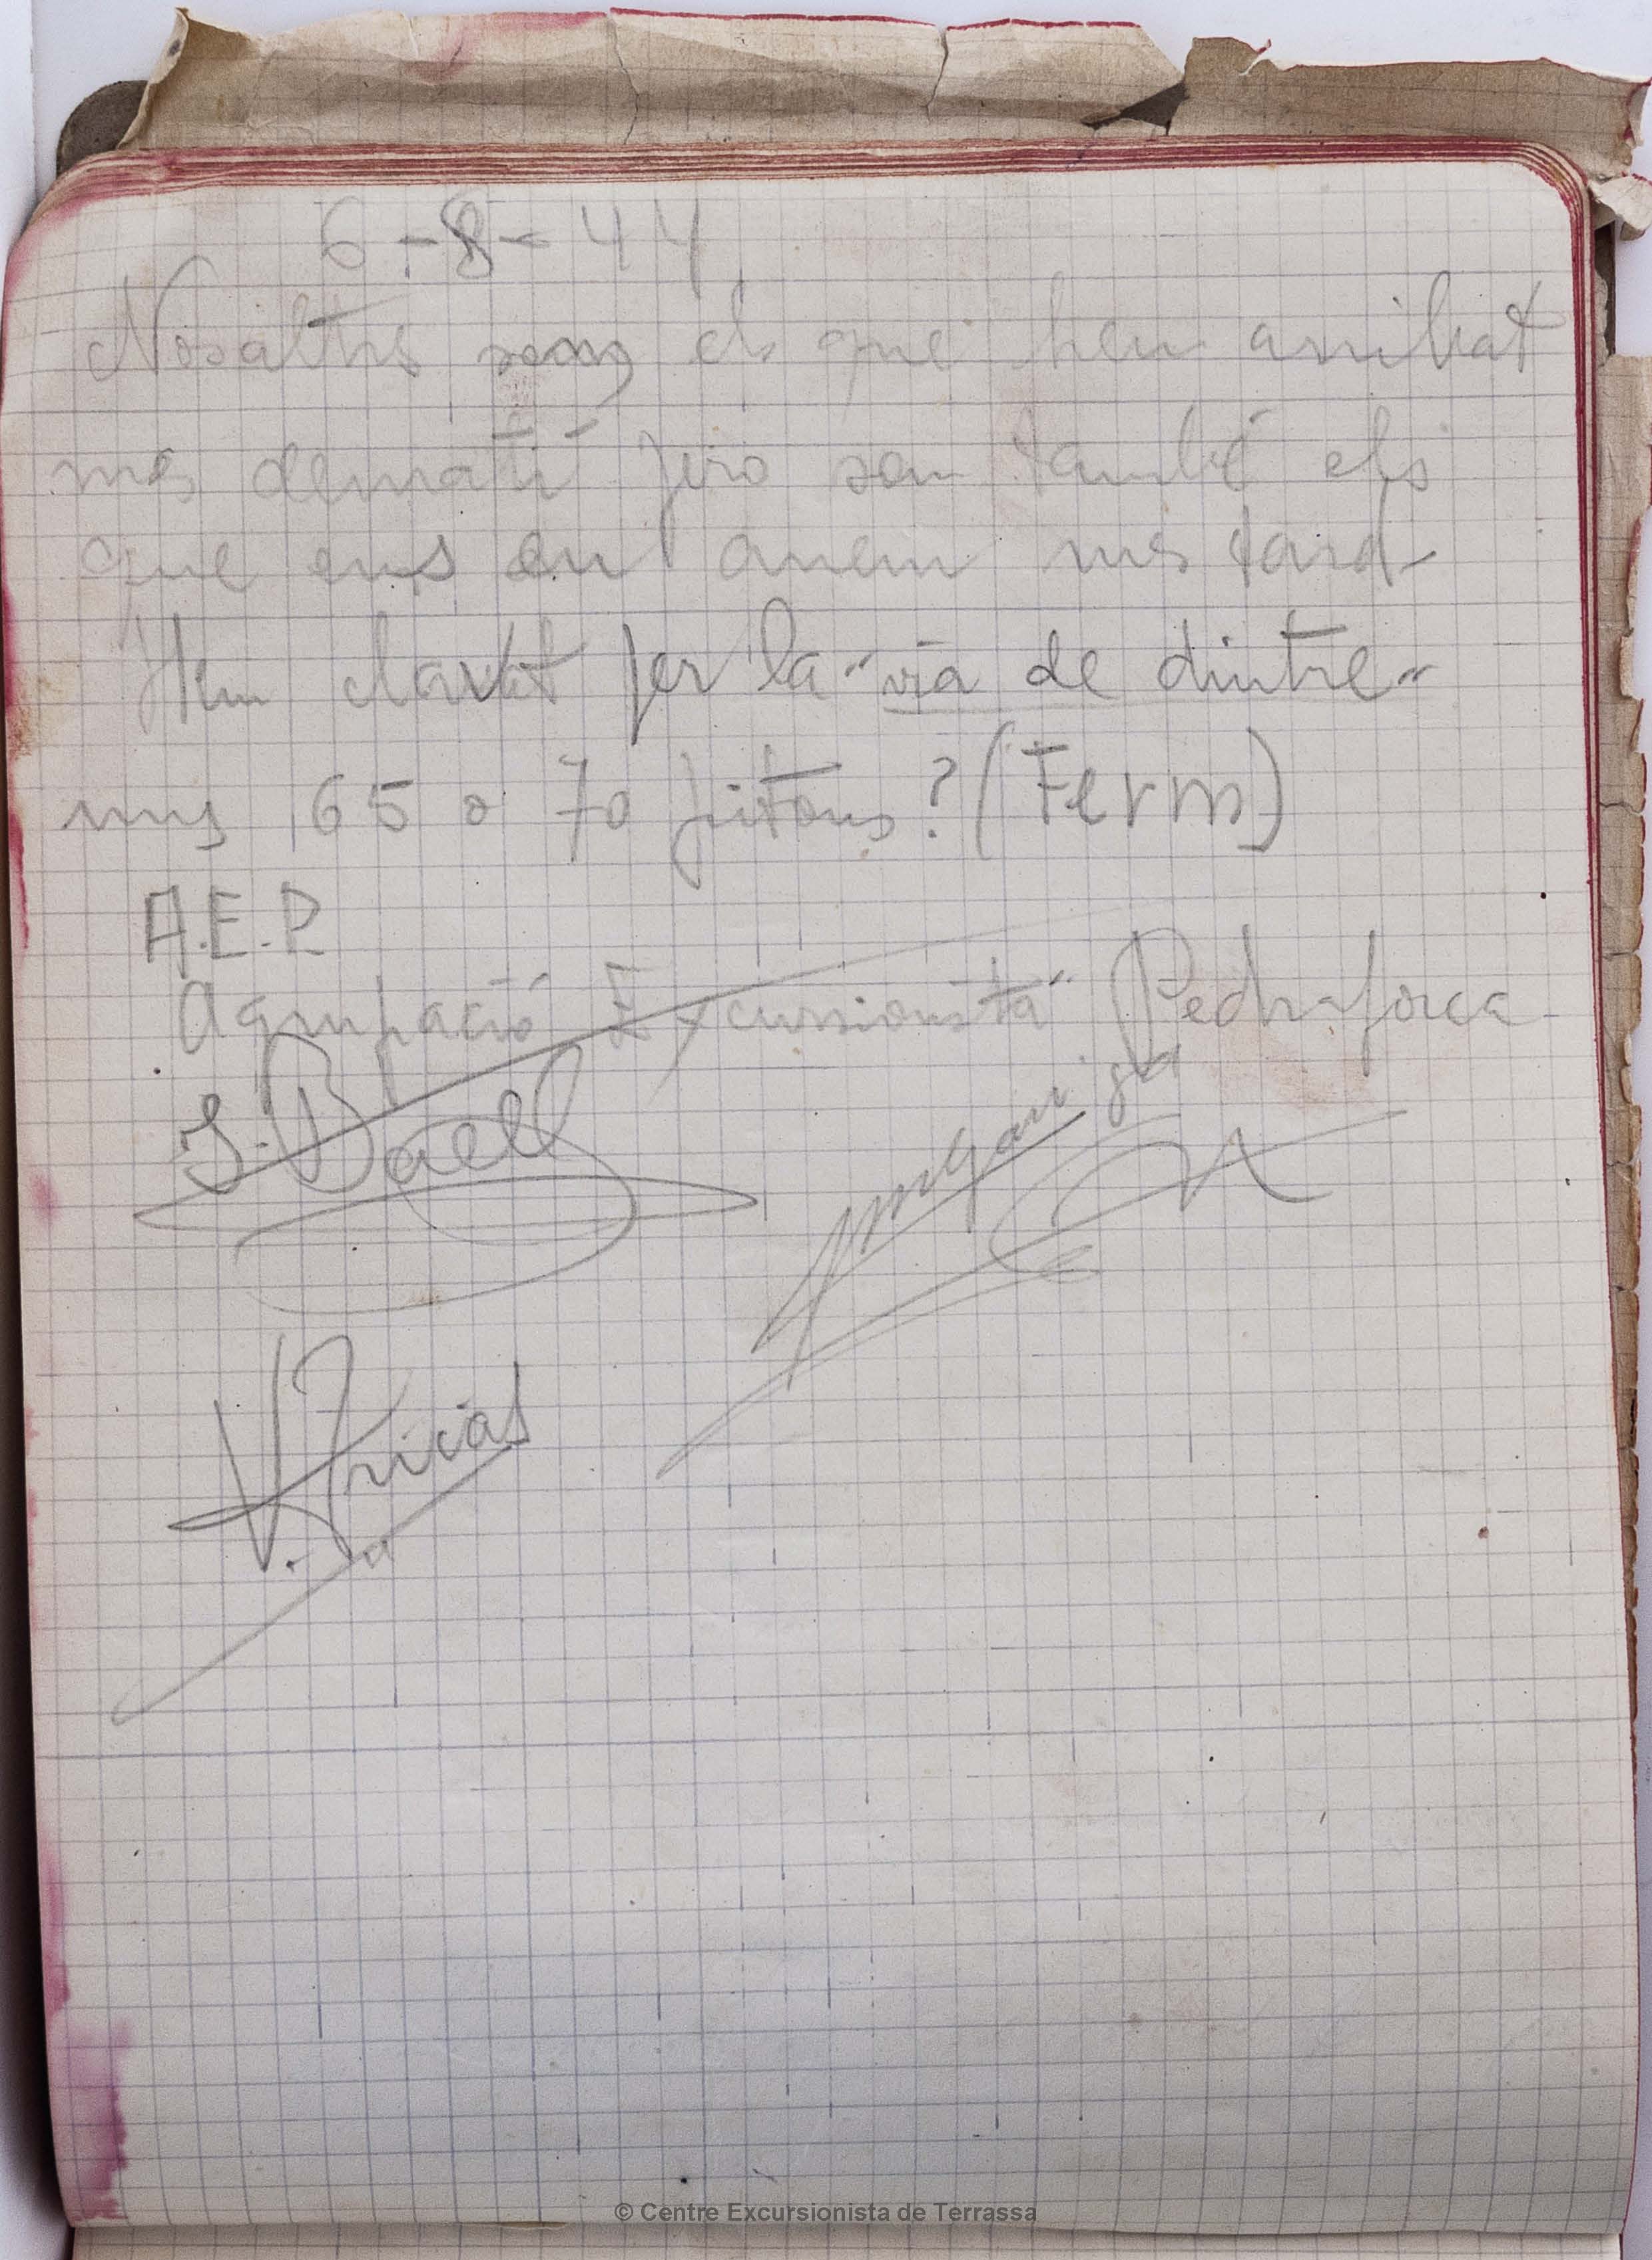 6-8-44
Nosaltres som els que hem arribat
mes demati pero som també els
que ens en anem mes tard
Hem clavat per la "via de dintre"
mes 65 o 70 pitons? (Ferm)
A.E.P.
Agrupació Excursionista "Pedraforca
J. Boell
© Centre Excursionista de Terrassa